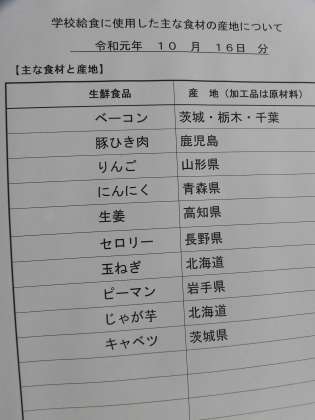 学校給食に使用した主な食材の産地について
令和元年 10 月 16日 分
【主な食材と産地】
生鮮食品 産 地（加工品は原材料）
ベーコン 茨城・栃木・千葉
豚ひき肉 鹿児島
りんご 山形県
にんにく 青森県
生姜 高知県
セロリー 長野県
玉ねぎ 北海道
ピーマン 岩手県
じゃが芋 北海道
キャベツ 茨城県